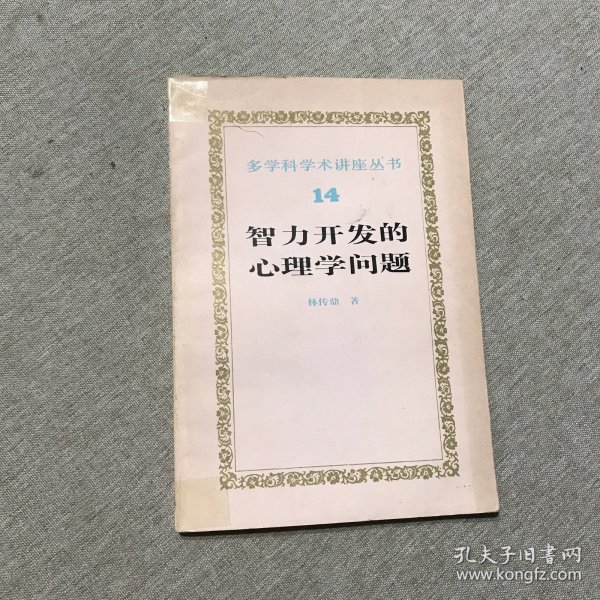 多学科学术讲座丛书
14
智力开发的
心理学问题
林传鼎 著
孔夫子旧书网
www.kongfz.com